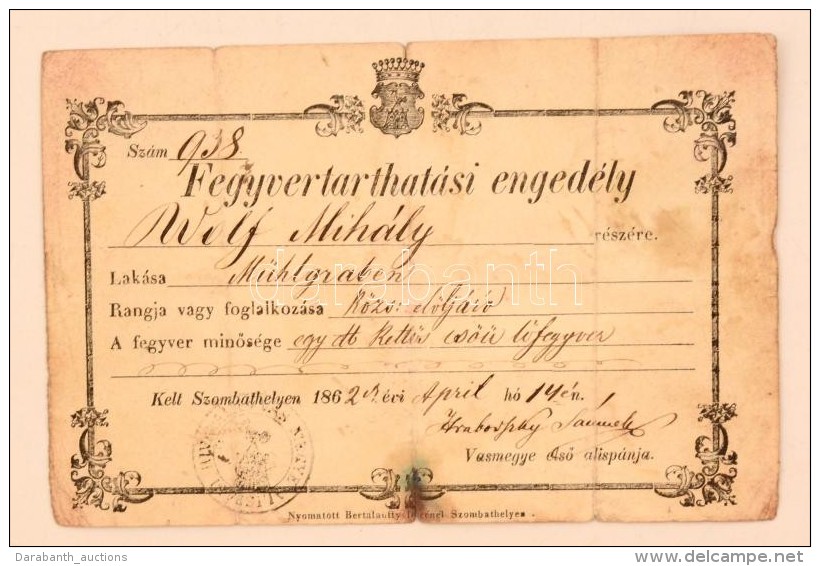 Szám 938.
Fegyvertarthatási engedély
Wolf Mihály részére.
Lakása Mühlgraben
Rangja vagy foglalkozása Közs: elöljáró
A fegyver minősége egy db kettős csöü lőfegyver
Kelt Szombathelyen 1862 évi April hó 14én.
Hrabovszky Sámuel
Vasmegye első alispánja.
Nyomatott Bertalanffy Szombathelyen.
darabanth
Darabanth_auctions
delcampe.net